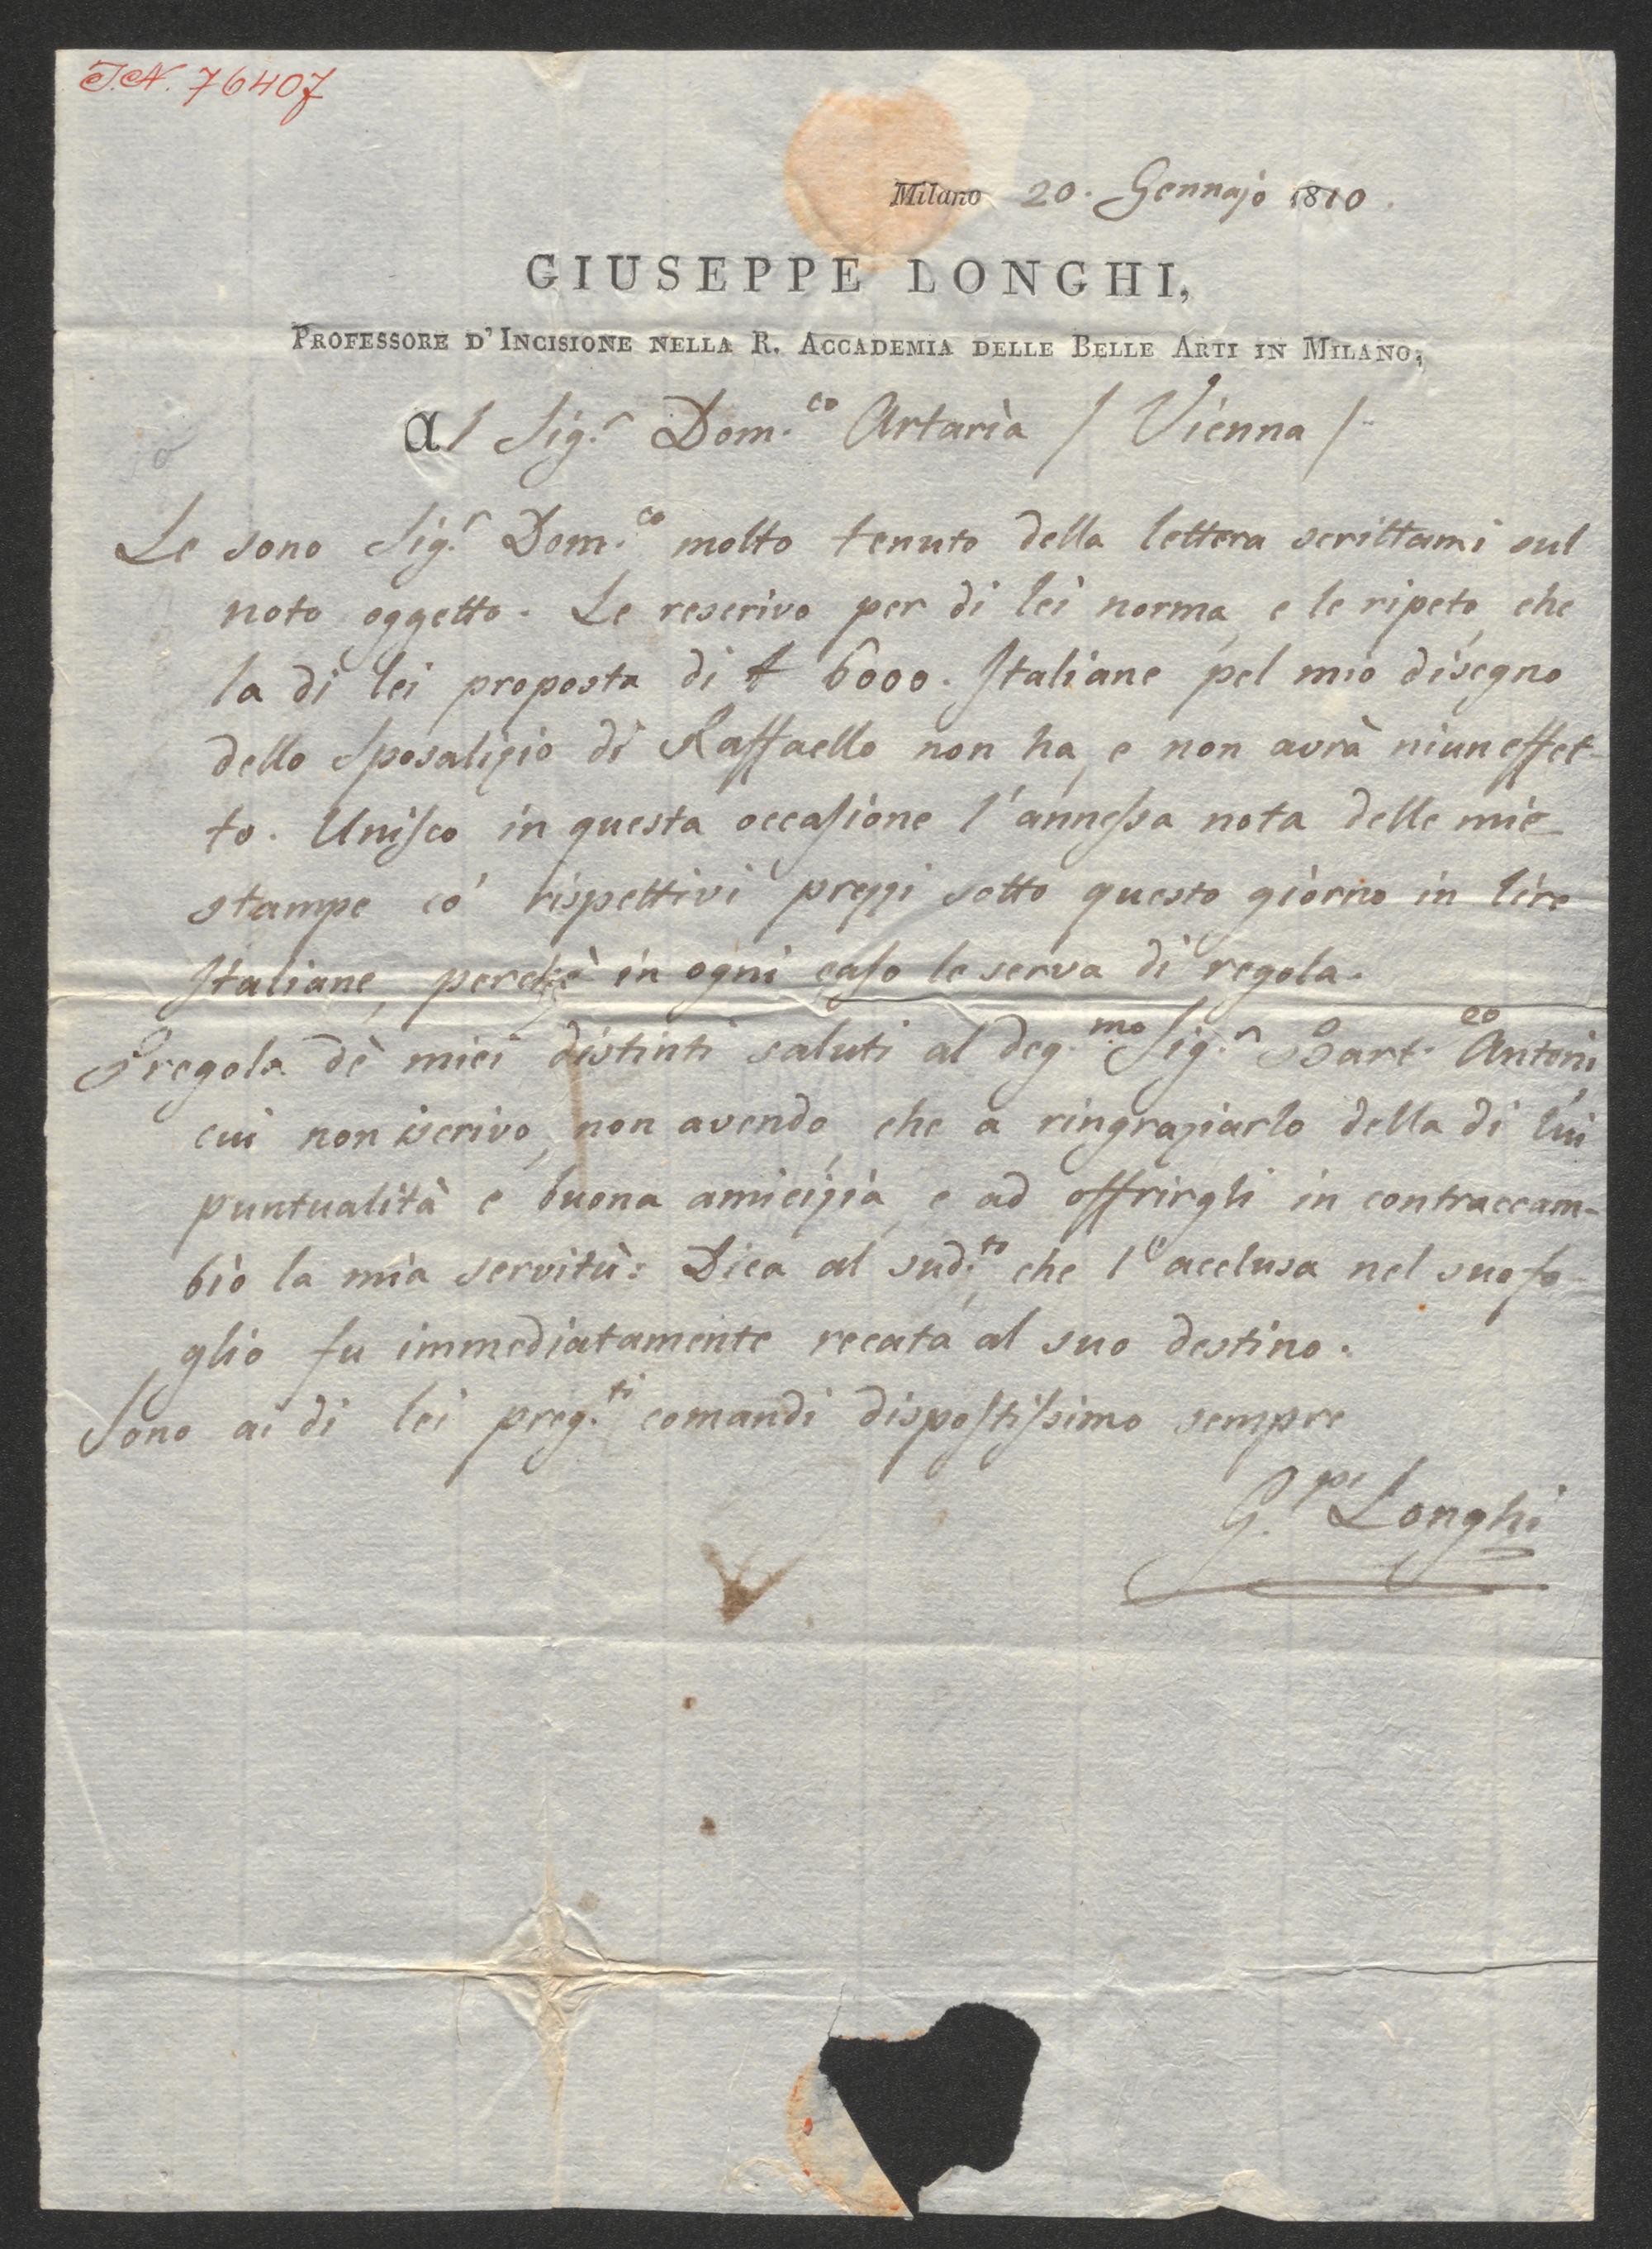 I.N. 76407
Milano 20. Gennajo 1810.
GIUSEPPE LONGHI,
PROFESSORE D'INCISIONE NELLA R. ACCADEMIA DELLE BELLE ARTI IN MILANO,
al Sig.r Dom.co Artaria / Vienna /
Le sono Sig.r Dom.co molto tenuto della lettera scrittami sul
noto oggetto. Le rescrivo per di lei norma, e le ripeto, che
la di lei proposta di £ 6000. Italiane pel mio disegno
dello Sposalizio di Raffaello non ha, e non avrà niun effet-
to. Unisco in questa occasione l'annessa nota delle mie
stampe co' rispettivi prezzi sotto questo giorno in lire
Italiane, perchè in ogni caso le serva di regola.
Pregola de miei distinti saluti al deg.mo Sig.r Bart.eo Antonj,
cui non iscrivo, non avendo, che a ringraziarlo della di lui
puntualità e buona amicizia, e ad offrirgli in contraccam-
bio la mia servitù: Dica al sud.to, che l'acclusa nel suo fo-
glio fu immediatamente recata al suo destino.
Sono ai di lei preg.ti comandi dispostissimo sempre
G.pe Longhi